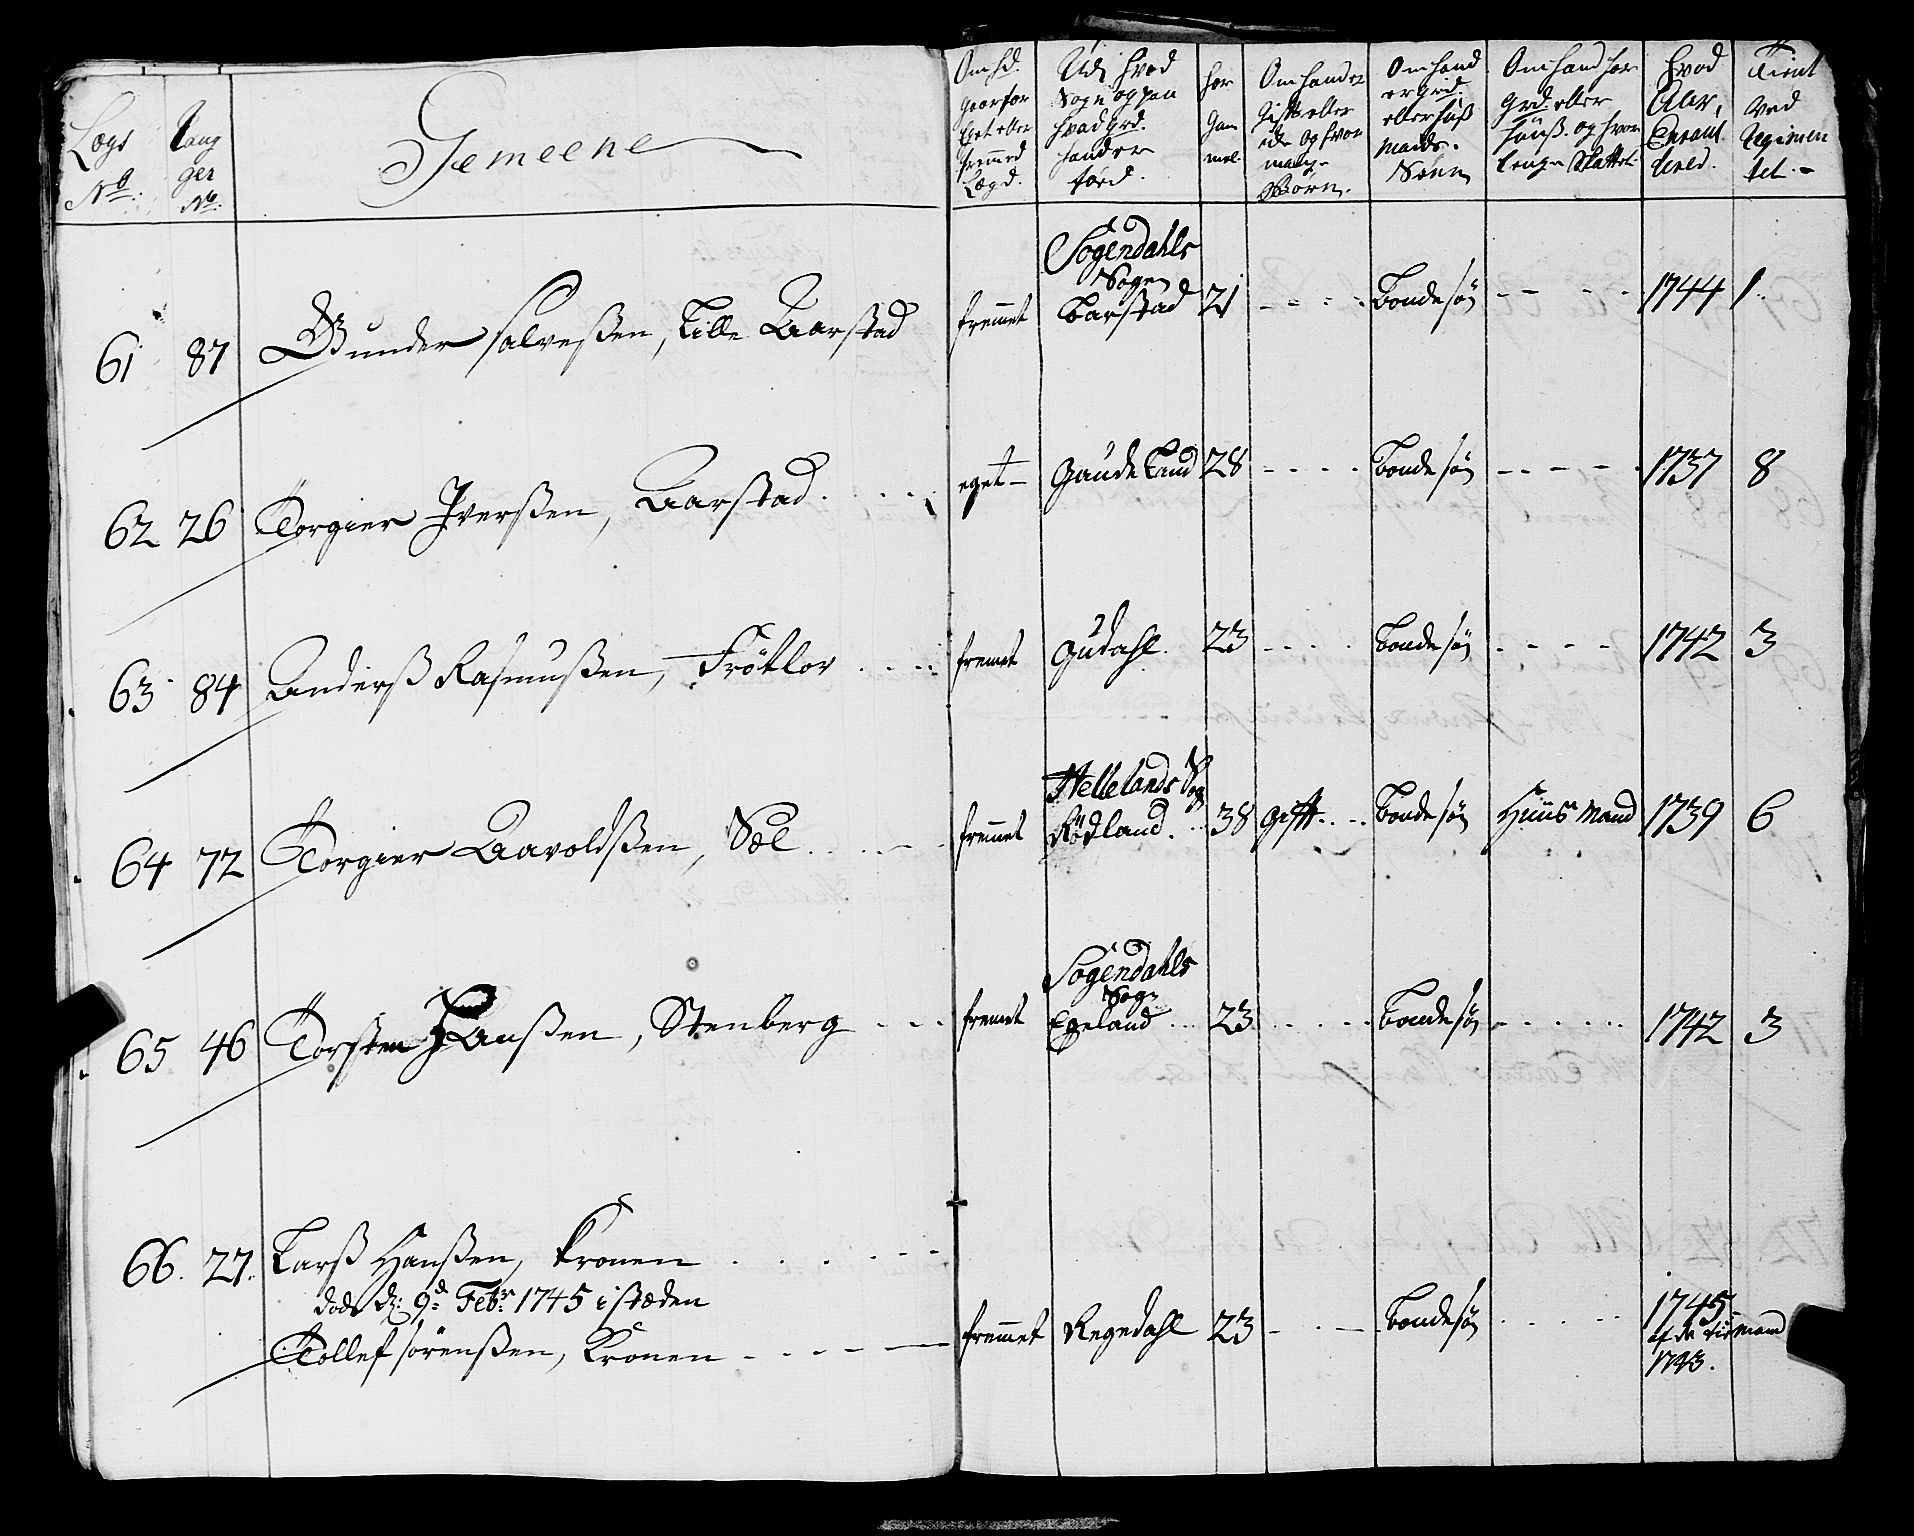 Lægs No.
Rang ger No.
Gemeene
Om hd. geör for Eget eller fremed Lægd.
Udj hvad Sogn og paa hvad grd. hand er föed.
hor gam mel
Om hand er Gift eller ide og hvor mange Börn.
Om hand er grd. eller huß mands Sönn
Om hand har Grd. eller Huuß og hvor
hvad Aar
Tient ved Regimentet.
61 87 Gunder Salveßen, Lille Aarstad fremmet Sogendahls Sogn Barstad 21 Bondesøn 1744 1
62 26 Torgier Iverßen, Aarstad eget Gaudeland 28 Bondesøn 1737 8
63 84 Anderß Rasmußen, Frötlov fremet Gudahl 23 Bondesøn 1742 3
64 72 Torgier Aavoldßen, Sæl fremmet Hellelands Sogn Rödland 38 Gifft Bondesøn Huusmand 1739 6
65 46 Torsten Hanßen, Stenberg fremet Sogendahls Sogn Egeland 23 Bondesøn 1742 3
66 27 Larß Hanßen, Kronen
döde d: 9d Febr 1745 i stæden
Tollef Sörenßen, Kronen fremmet Regedahl 23 Bondesøn 1745
1743